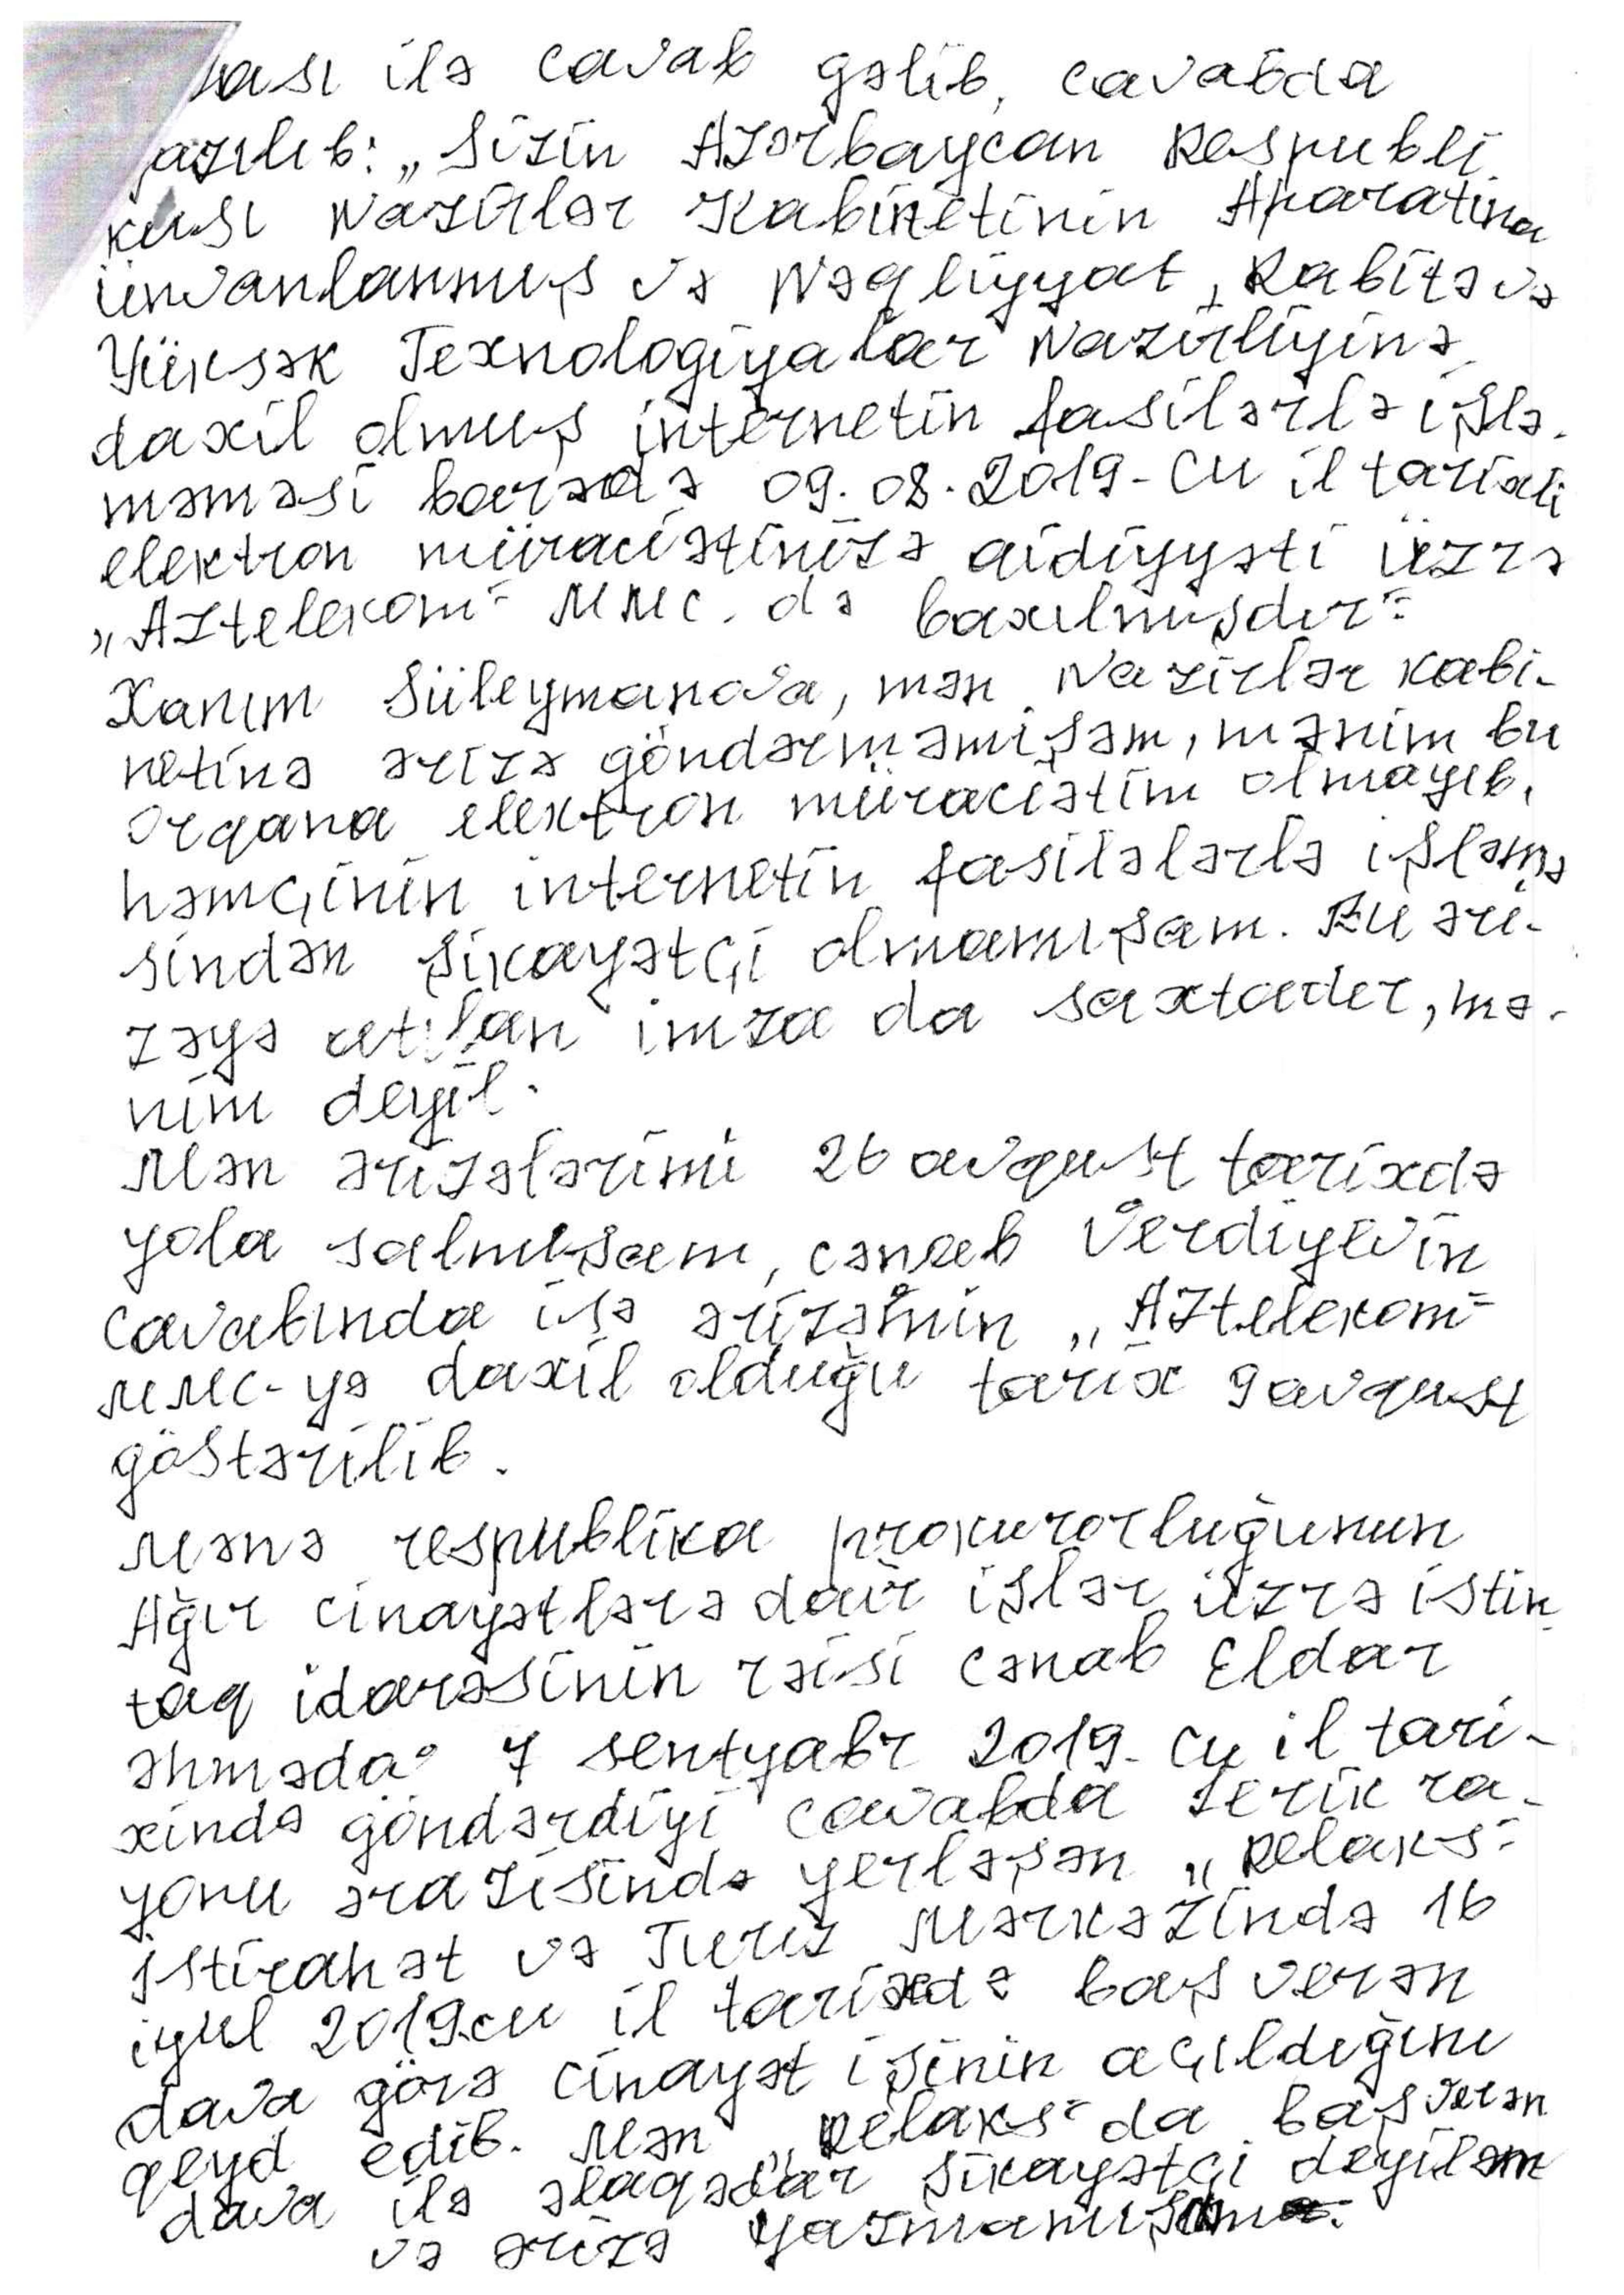 ilə cavab gəlib, cavabda
yazılıb: „Sizin Azərbaycan Respubli-
kası Nazirlər Kabinetinin Aparatına
ünvanlanmış və Nəqliyyat, Rabitə və
Yüksək Texnologiyalar Nazirliyinə
daxil olmuş internetin fasilərlə işlə-
məməsi barədə 09.08.2019-cu il tarixli
elektron müraciətinizə aidiyyəti üzrə
„Aztelekom" MMC-də baxılmışdır"
Xanım Süleymanova, mən Nazirlər Kabi-
netinə ərizə göndərməmişəm, mənim bu
orqana elektron müraciətim olmayıb,
həmçinin internetin fasilələrlə işləmə
sindən şikayətçi olmamışam. Bu əri-
zəyə atılan imza da saxtadır, mə-
nim deyil.
Mən ərizələrimi 26 avqust tarixdə
yola salmışam, cənab Verdiyevin
cavabında isə ərizəmin „Aztelekom"
MMC-yə daxil olduğu tarix 9 avqust
göstərilib.
Mənə respublika prokurorluğunun
Ağır cinayətlərə dair işlər üzrə istin-
taq idarəsinin rəisi cənab Eldar
7 sentyabr 2019-cu il tari-
xində göndərdiyi cavabda Lerik ra-
yonu ərazisində yerləşən „Relaks"
İstirahət və Turiz Mərkəzində 16
iyul 2019-cu il tarixdə baş verən
dava görə cinayət işinin açıldığını
qeyd edib. Mən „Relaks" da baş verən
dava ilə əlaqədar şikayətçi deyiləm
və ərizə yazmamışam.